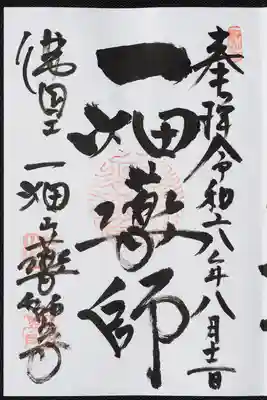 奉拝 令和六年八月十二日
一畑薬師
佛国土 一畑山薬師寺